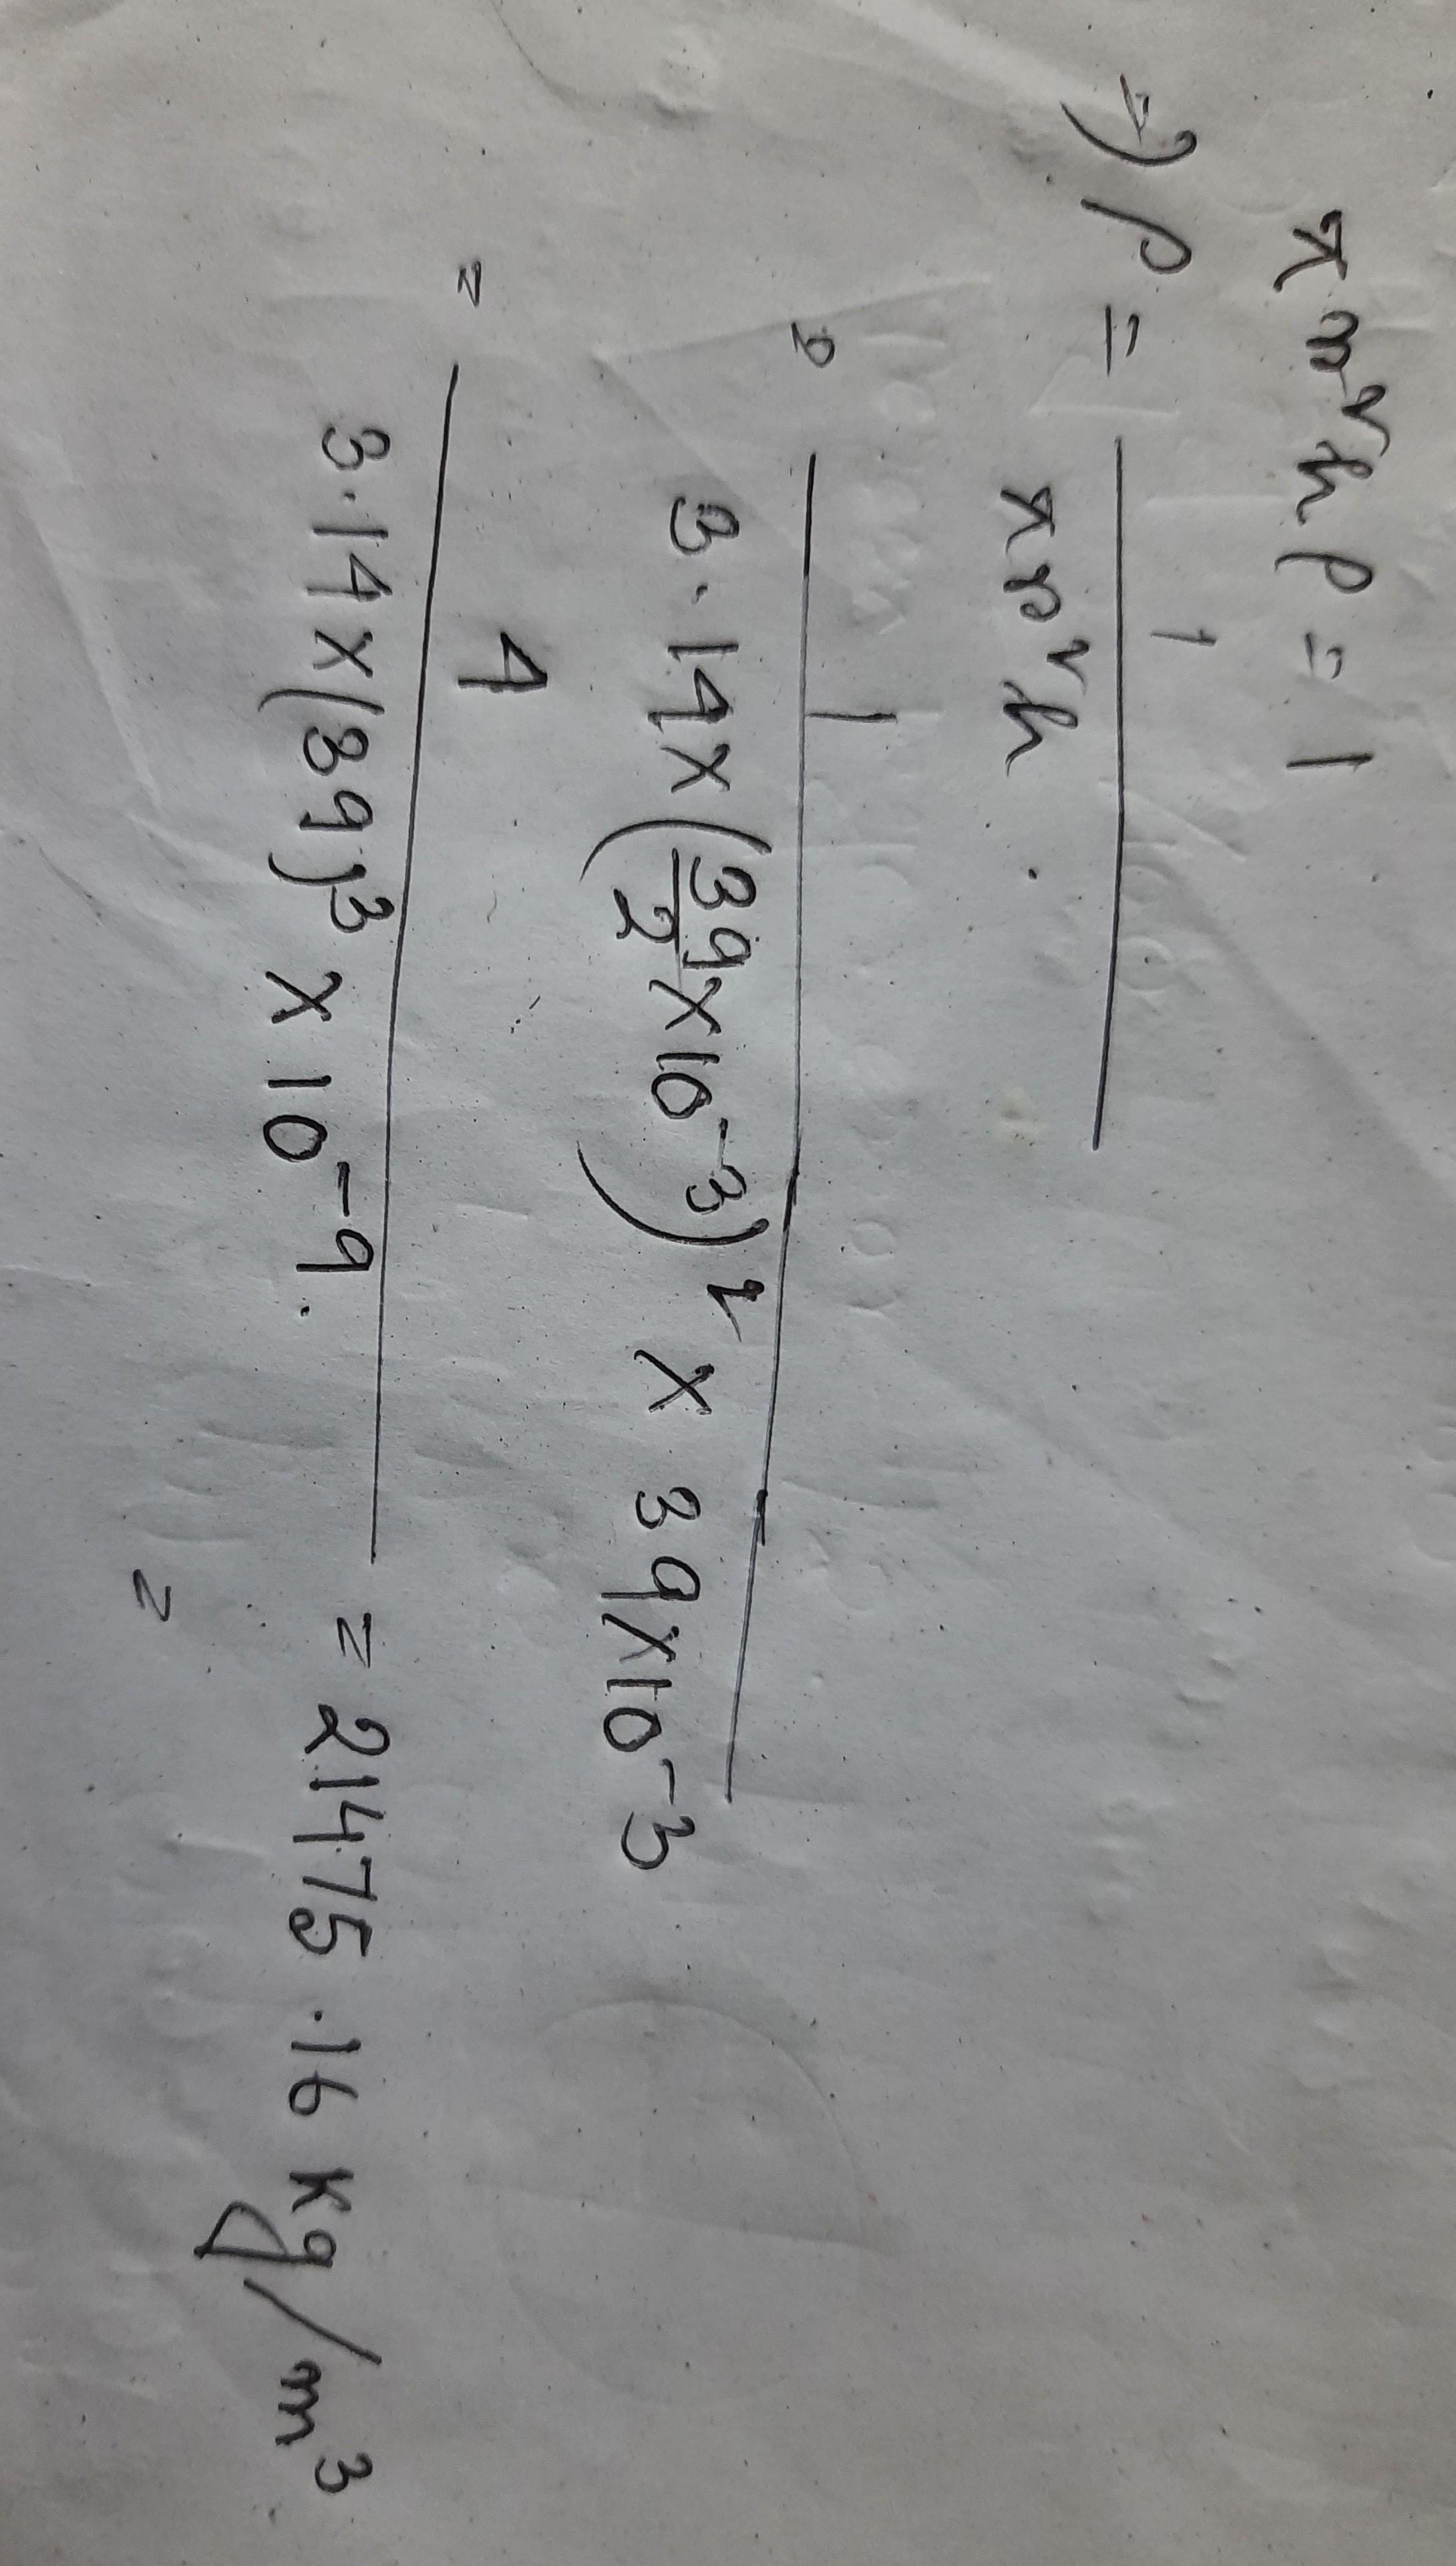 πr²hρ = 1
⇒) ρ = 1 / πr²h .
= 1 / 3.14×(39/2×10⁻³)² × 39×10⁻³
= 4 / 3.14×(39)³ × 10⁻⁹. = 21475.16 Kg/m³
=